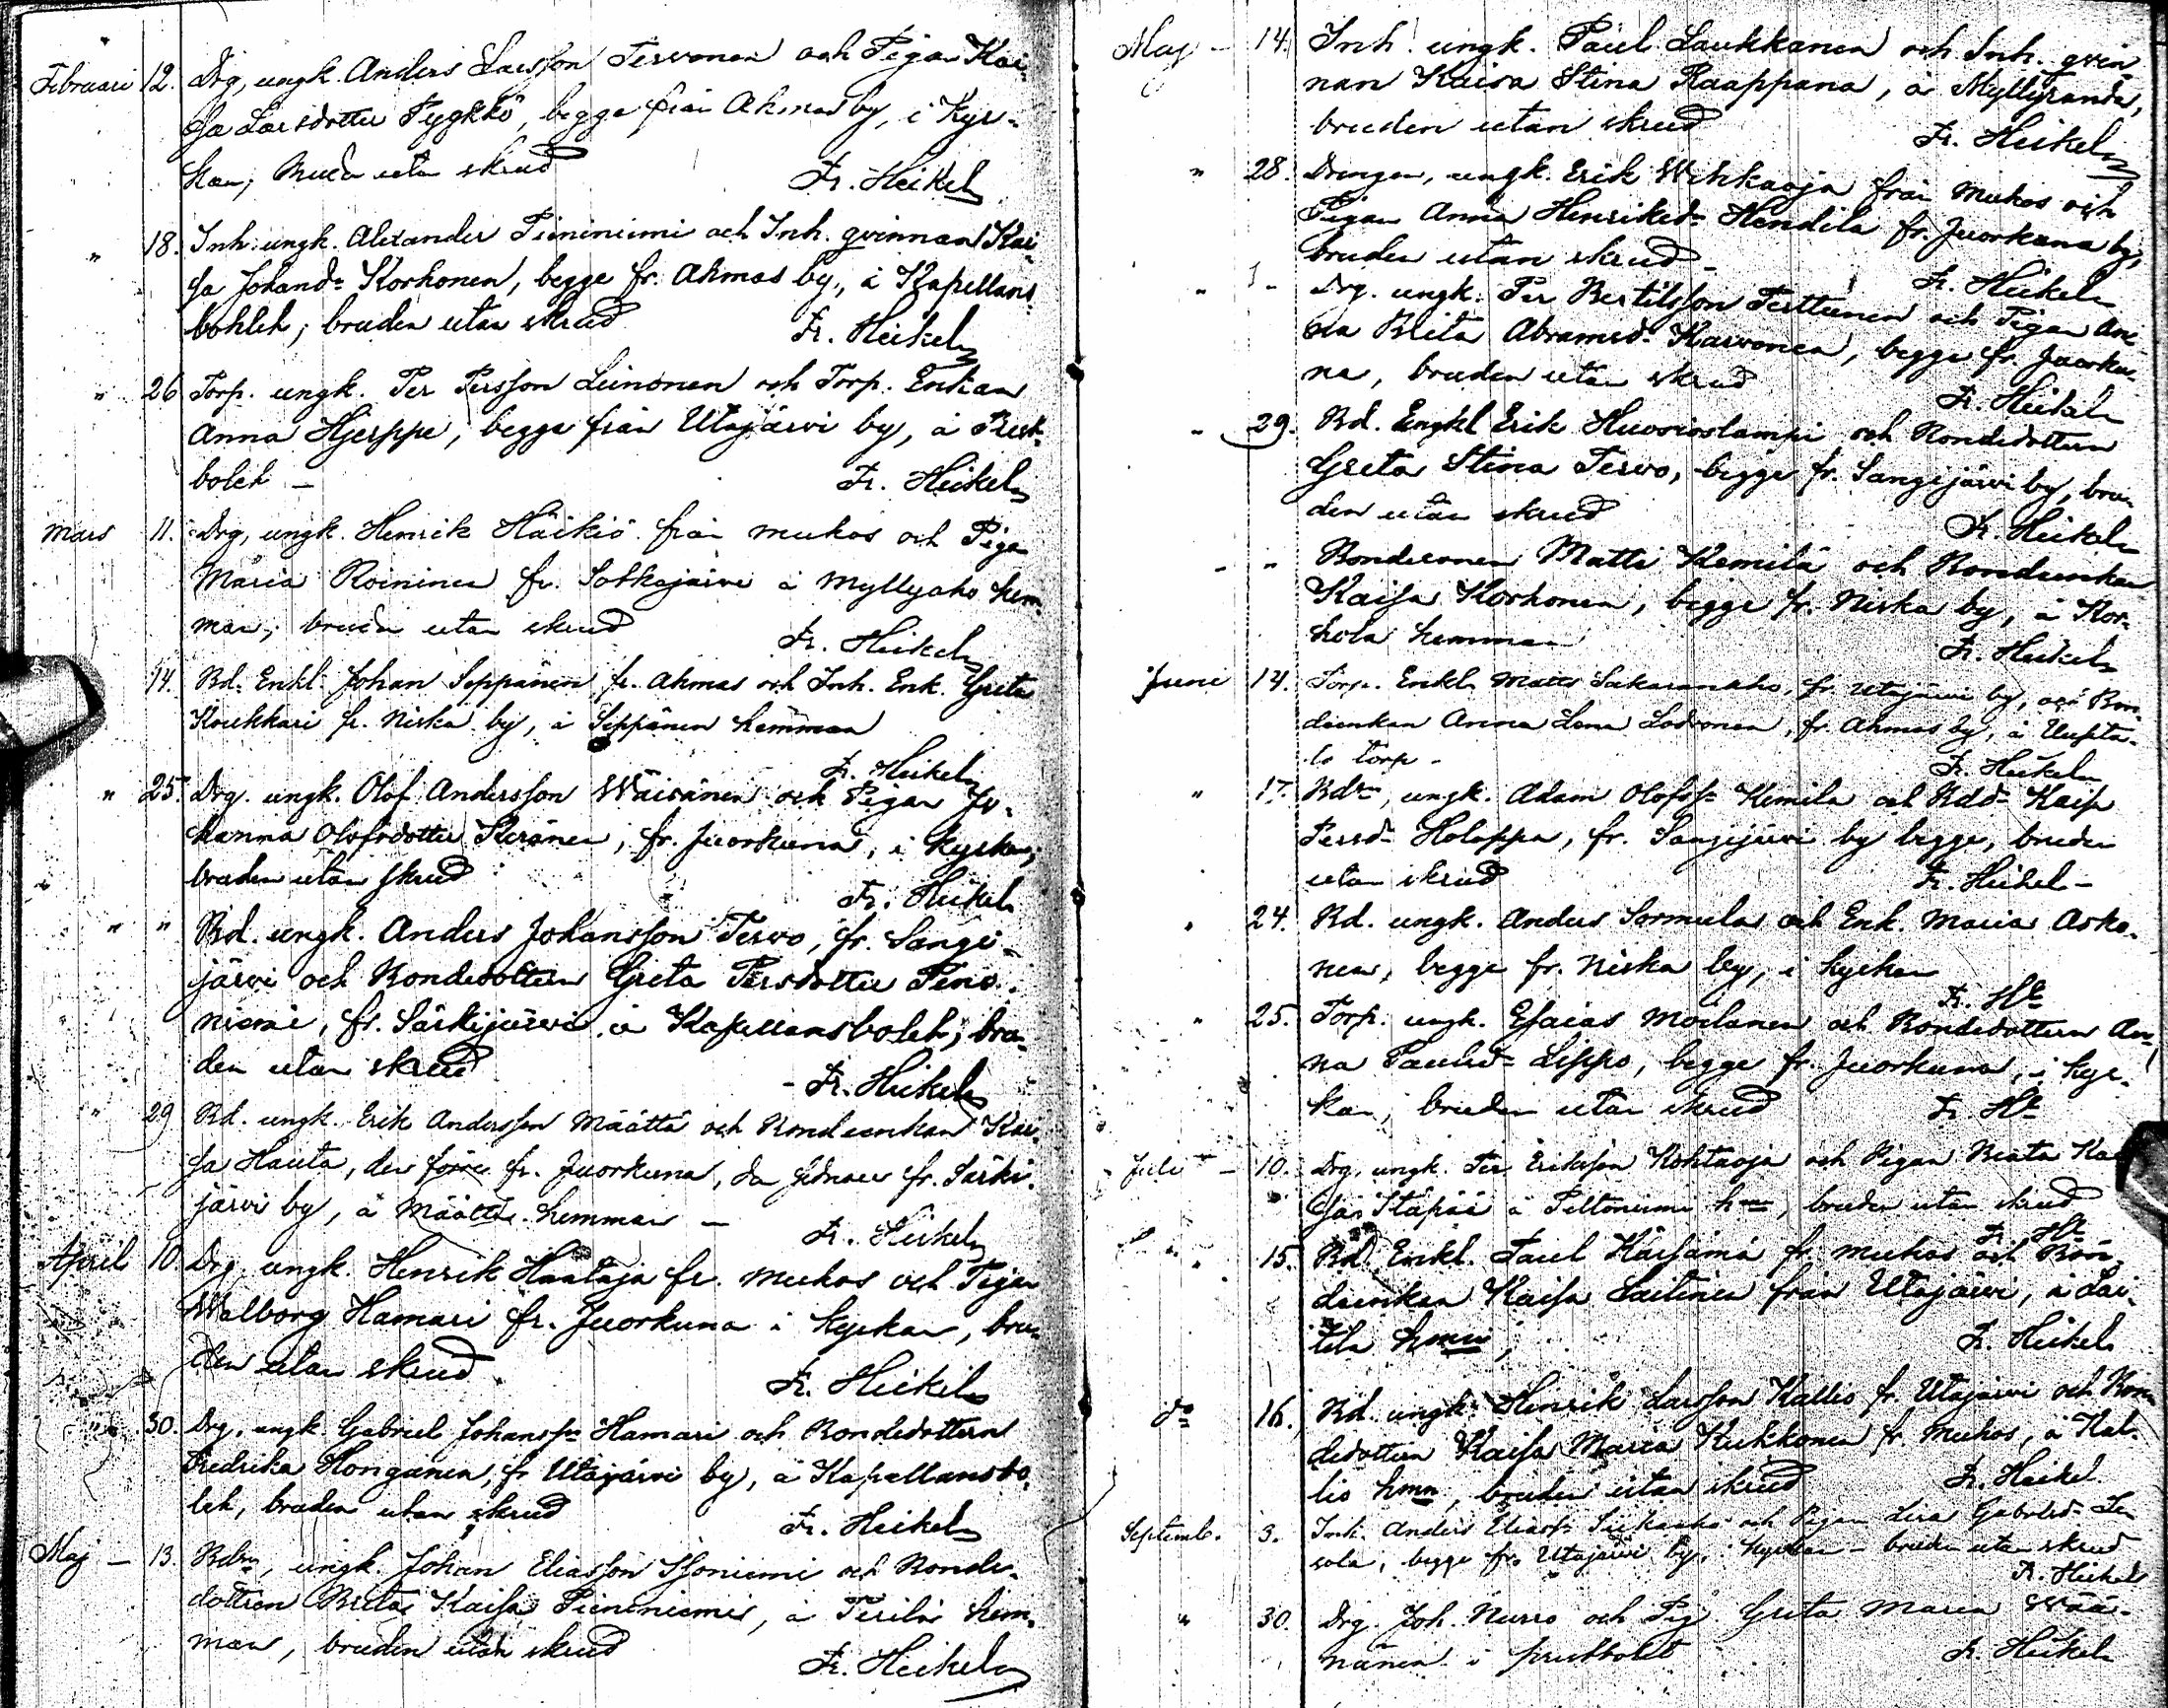 Februari 12. Drg, ungk. Anders Larsson Tervonen och Pigan Kai-
sa Larsdotter Pygkkö, begge från Ahmas by, i Kyr-
kan; bruden utan skrud
Fr. Heikel
" 18. Inh. ungk. Alexander Pieniniemi och Inh. qvinnan Kai-
sa Johansd:r Korhonen, begge fr. Ahmas by, å Kapellans
bohlet; bruden utan skrud
Fr. Heikel
" 26 Torp. ungk. Per Persson Leinonen och Torp. Enkan
Anna Hjerppe, begge från Utajärvi by, å Prest-
bolet –
Fr. Heikel
Mars 11. Drg, ungk. Henrik Häikiö från Muhos och Pigan
Maria Roininen fr. Sotkajärvi å Myllyaho hem-
man; bruden utan skrud
Fr. Heikel
14. Bd. Enkl. Johan Seppänen fr. Ahmas och Inh. Enk. Greta
Koukkari fr. Niska by, å Seppänen hemman
Fr. Heikel
" 25. Drg. ungk. Olof Andersson Wäisänen och Pigan Jo-
hanna Olofsdotter Keränen, fr. Juorkuna, i Kyrkan;
bruden utan skrud
Fr. Heikel
" " Bd. ungk. Anders Johansson Tervo, fr. Sangi-
järvi och Bondedottern Greta Persdotter Peno-
niemi, fr. Särkijärvi å Kapellansbolet; bru-
den utan skrud
– Fr. Heikel
" 29 Bd. ungk. Erik Andersson Määttä och Bondeenkan Kai-
sa Hauta, den förre fr. Juorkuna, da sednare fr. Särki-
järvi by, å Määttä hemman –
Fr. Heikel
April 10. Drg. ungk. Henrik Haataja fr. Muhos och Pigan
Walborg Hamari fr. Juorkuna i Kyrkan, bru-
den utan skrud
Fr. Heikel
" 30. Drg. ungk. Gabriel Johanss:n Hamari och Bondedottern
Fredrika Honganen, fr. Utajärvi by, å Kapellansbo-
let, bruden utan skrud
Fr. Heikel
Maj – 13. Bdn, ungk. Johan Eliasson Isoniemi och Bonde-
dottren Brita Kaisa Pieniniemi, å Perilä hem-
man, bruden utan skrud
Fr. Heikel
Maj – 14. Inh. ungk. Paul Laukkanen och Inh. qvin-
nan Kaisa Stina Kaappana, å Myllyranda,
bruden utan skrud
Fr. Heikel
" 28. Drengen, ungk. Erik Wihkaoja från Muhos och
Pigan Anna Henriksd:r Hendilä fr. Juorkuna by,
bruden utan skrud –
Fr. Heikel
" Drg. ungk. Per Bertilsson Terttunen och Pigan An-
na Brita Abramsd:r Karvonen, begge fr. Juorku-
na, bruden utan skrud
Fr. Heikel
" 29. Bd. Engkl Erik Huovioslampi och Bondedottern
Greta Stina Tervo, begge fr. Sangijärvi by, bru-
den utan skrud
Fr. Heikel
" " Bondesonen Matts Kemilä och Bondeenkan
Kaisa Korhonen, begge fr. Niska by, å Kor-
hola hemman
Fr. Heikel
Juni 14. Torp. Enkl. Matts Sakaranaho, fr. Utajärvi by, och Bon-
deenkan Anna Lena Lodvonen, fr. Ahmas by, å Uusita-
lo torp –
Fr. Heikel
" 17. Bdn, ungk. Adam Olofss:n Kemilä och Bdd:r Kaisa
Persd:r Holappa, fr. Sangijärvi by begge, bruden
utan skrud
Fr. Heikel –
" 24. Bd. ungk. Anders Sormula och Enk. Maria Aska-
nen, begge fr. Niska by, i kyrkan
Fr. Hl
" 25. Torp. ungk. Esaias Moilanen och Bondedottern An-
na Paulsd:r Leppo, begge fr. Juorkuna, i Kyr-
kan, bruden utan skrud
Fr. Hl
Juli – 10. Drg. ungk. Per Eriksson Kohtaoja och Pigan Beata Kai-
sa Itäpää å Peltoniemi hmn, bruden utan skrud
Fr. Hl
" 15. Bd. Enkl. Paul Kärsämä fr. Muhos och Bon-
deenkan Kaisa Laitinen från Utajärvi, å Lai-
tila hmn,
Fr. Heikel
d:o 16. Bd. ungk. Henrik Larsson Kallio fr. Utajärvi och Bon-
dedottern Kaisa Maria Kukkonen fr. Muhos, å Kal-
lio hmn, bruden utan skrud
Fr. Heikel
Septemb. 3. Inh. Anders Eliass:n och Pigan Lisa Gabrielsd:r
sola, begge fr. Utajärvi by, i kyrkan – bruden utan skrud
Fr. Heikel
" 30. Drg. Joh. Nurro och Pig. Greta Maria Wää-
nänen i prestbolet
Fr. Heikel